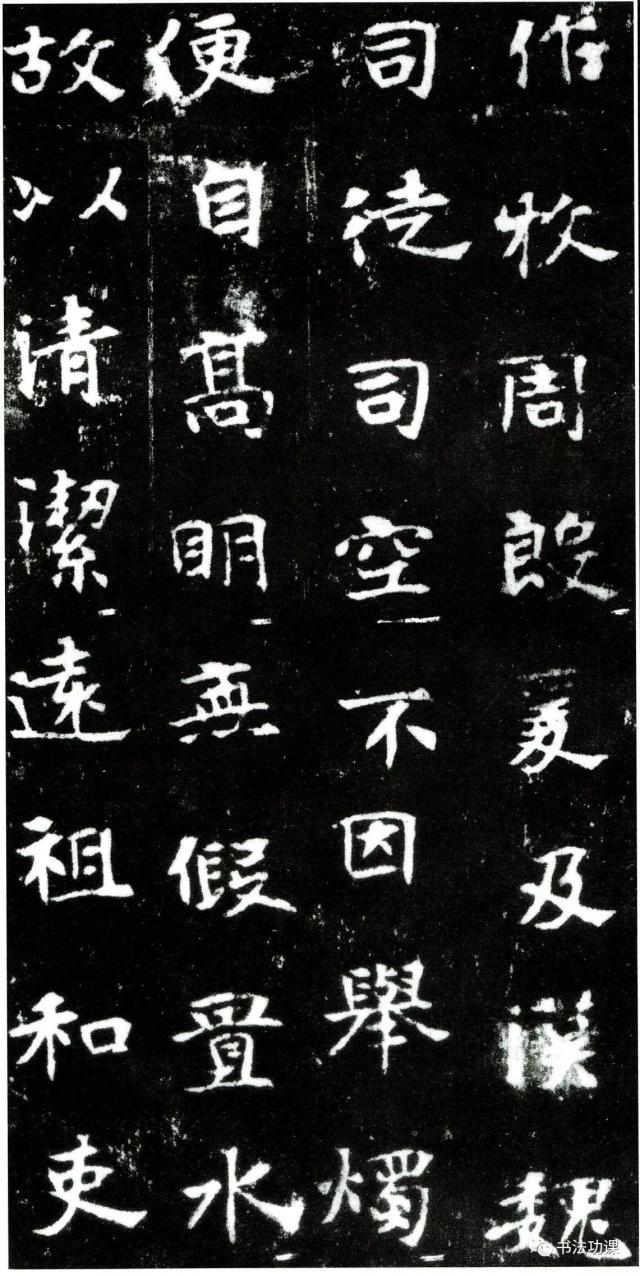 作牧周殷爰及漢魏
司徒司空不因舉燭
便自高明無假置水
故以清潔遠祖和吏
书法功课